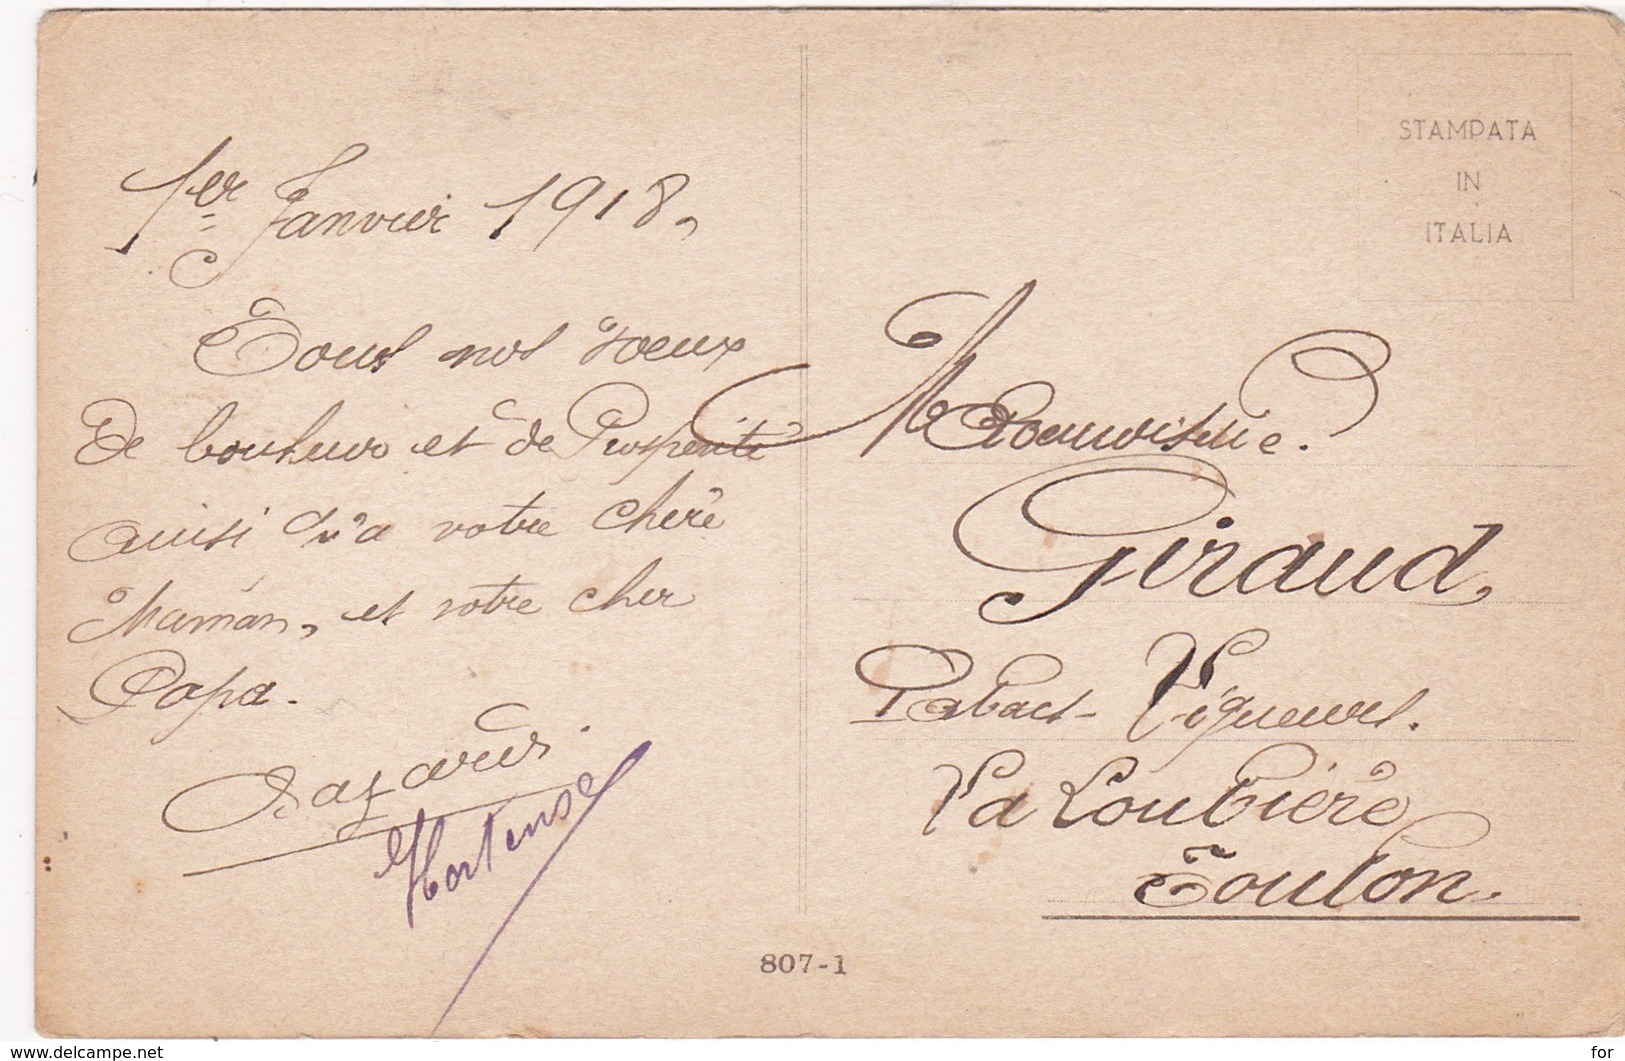 1er Janvier 1918.
Tous nos voeux
de bonheur et de Prosperite
ainsi qu'a votre chère
Maman, et votre cher
Papa.
Lazarus.
Hortense
STAMPATA
IN
ITALIA
Giraud,
Tabacs - Vigneurs.
La Loubière
Toulon.
807-1
www.delcampe.net
for